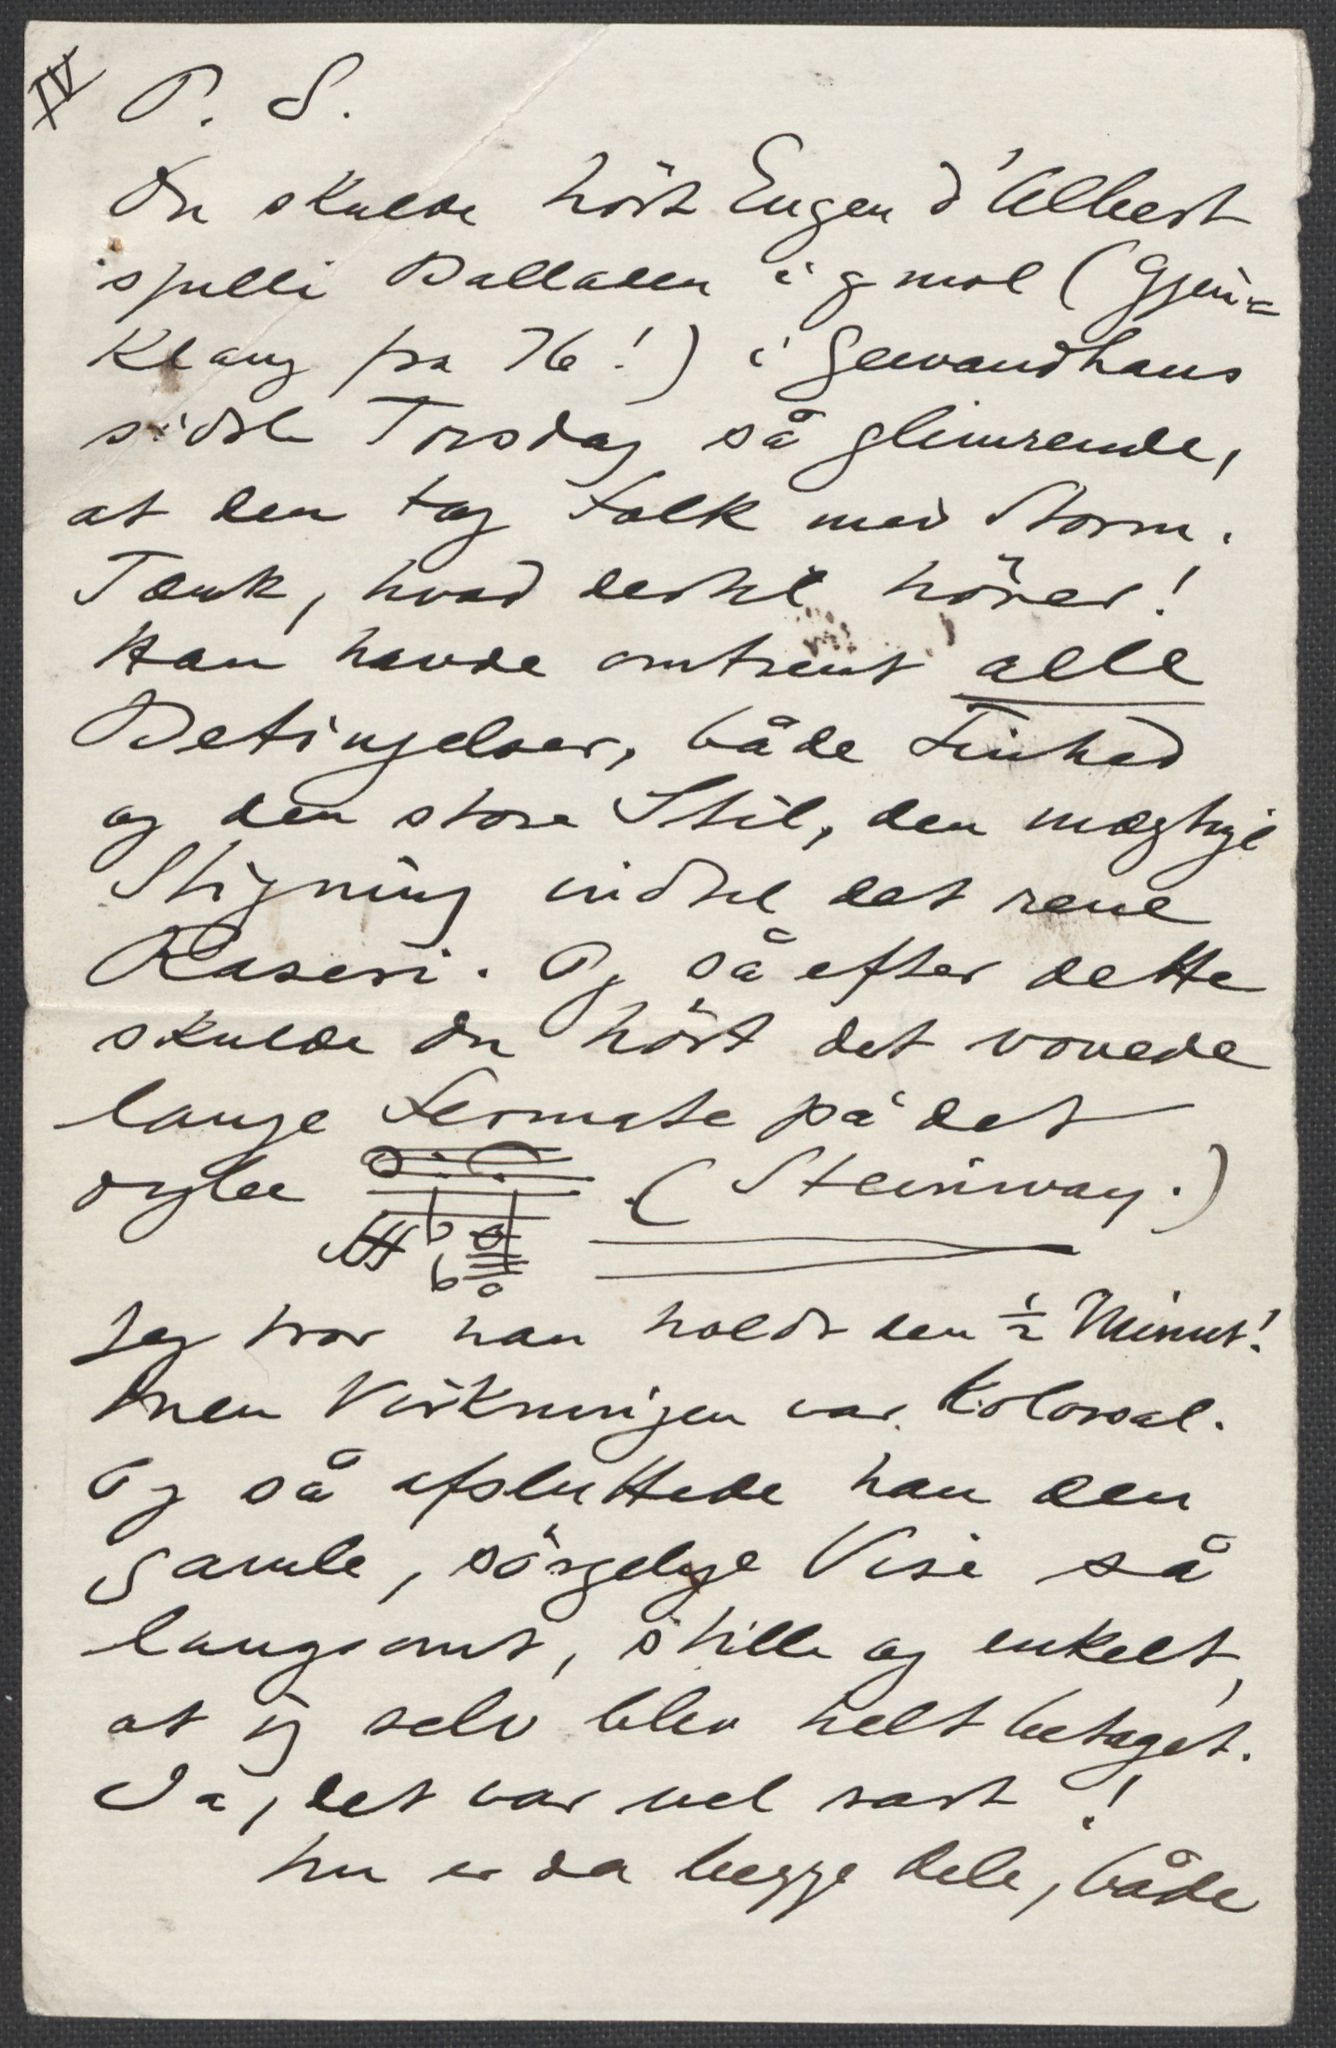 IV P. S.
Du skulde hört Eugen d'Albert
spille Balladen i g mol (Gjen=
klang fra 76!) i Gewandhaus
sidste Torsdag så glimrende,
at den tog Folk med Storm.
Tænk, hvad dertil hörer!
Han havde omtrent alle
Betingelser, både Finhed
og den store Stil, den mægtige
Stigning indtil det rene
Raseri. Og så efter dette
skulde du hört det vovede
lange Fermate på det
dybe (Steinway.)
fff
Jeg tror han holdt den ½ Minut!
Men Virkningen var kolossal.
Og så afsluttede han den
gamle, sörgelige Vise så
langsomt, stille og enkelt,
at jeg selv blev helt betaget.
Ja, det var vel rart!
Nu er da begge dele, både